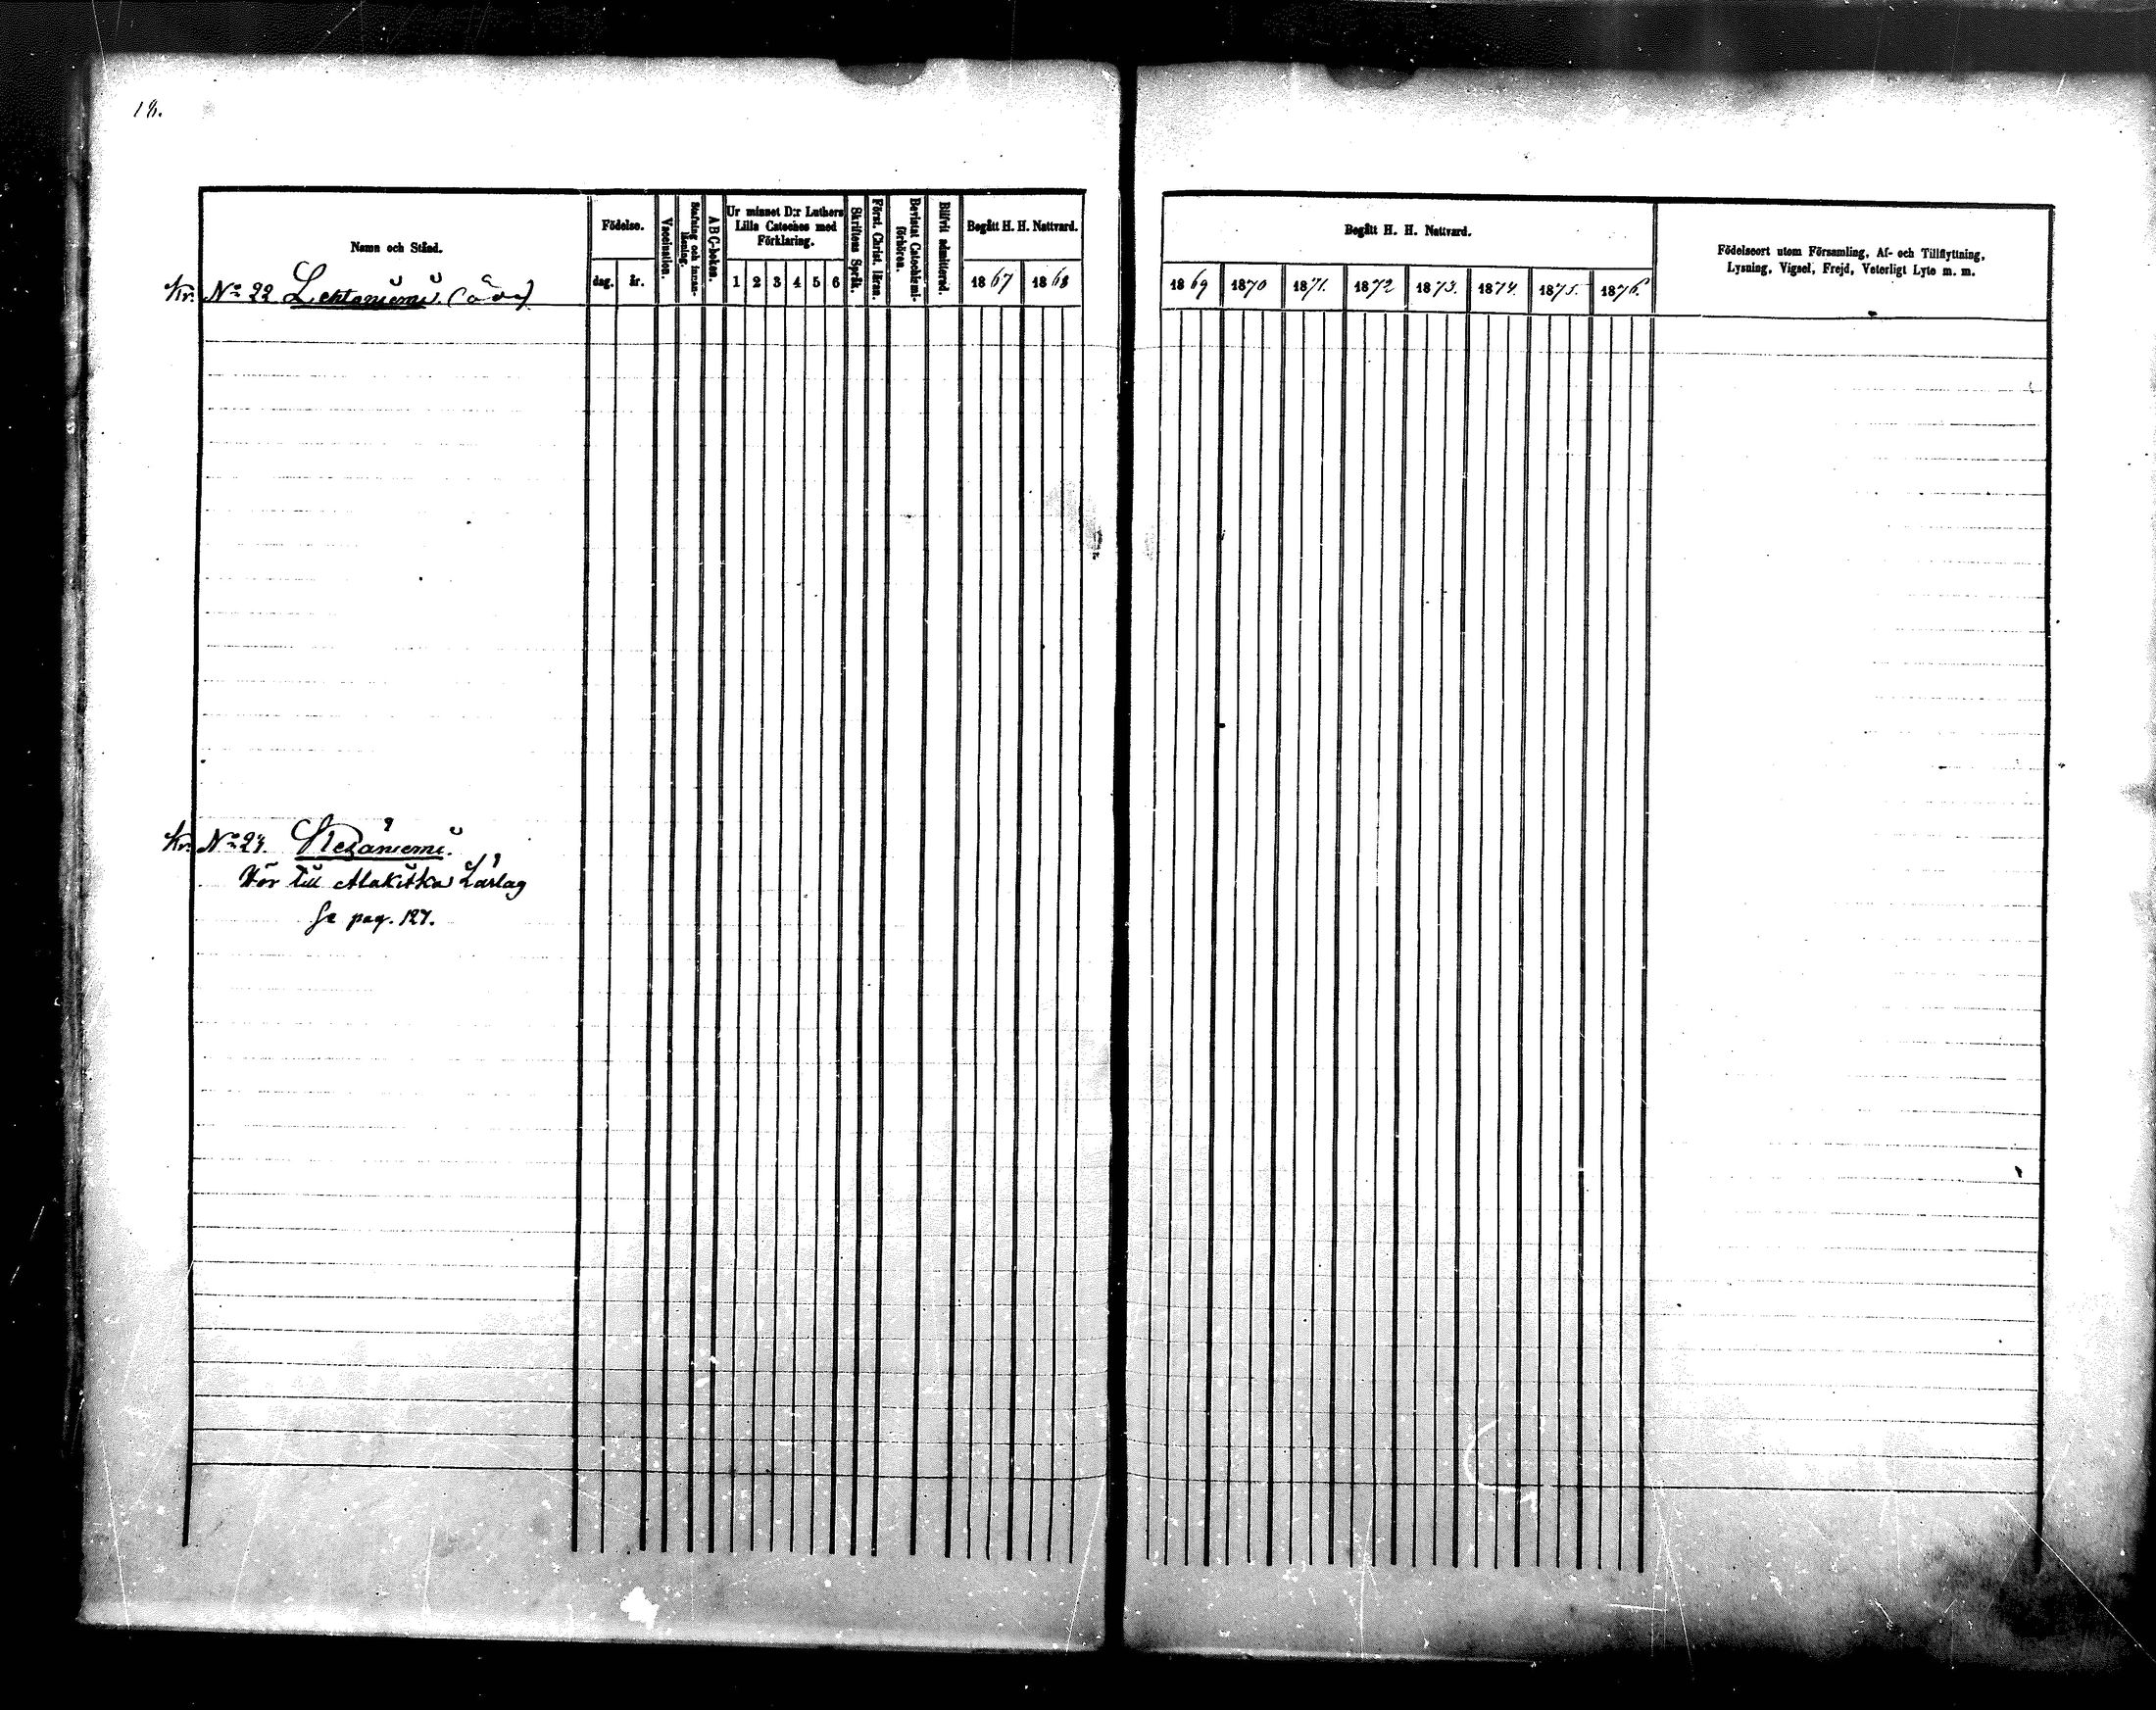 18.
Namn och Stånd.
Födelse.
dag. år.
Vaccination.
Stafning och innan-
läsning.
A B C-boken.
Ur minnet D:r Luthers
Lilla Cateches med
Förklaring.
1 2 3 4 5 6
Skriftens Språk.
Först. Christ. läran.
Bevistat Catechismi-
förhören.
Blifvit admitterad.
Begått H. H. Nattvard.
1867 1868
Kr. No 22 Lehtoniemi. (öde)
Kr. No 24.
Hör till Alakitka Lärlag
Se pag. 127.
Begått H. H. Nattvard.
1869 1870 1871. 1872 1873. 1874. 1875. 1876.
Födelseort utom Församling, Af- och Tillflyttning,
Lysning, Vigsel, Frejd, Veterligt Lyte m. m.